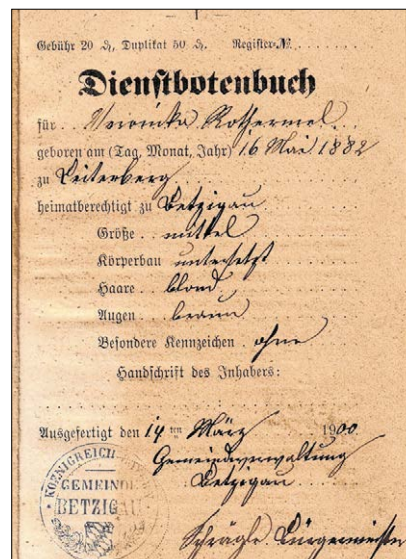 Gebühr 20 ₰, Duplikat 50 ₰. Register-№.
Dienstbotenbuch
für Veronika Rothermel
geboren am (Tag, Monat, Jahr) 16 Mai 1882
zu Leiterberg
heimatberechtigt zu Betzigau
Größe mittel
Körperbau untersetzt
Haare blond
Augen braun
Besondere Kennzeichen ohne
Handschrift des Inhabers:
Ausgefertigt den 14ten März 1900.
Gemeindeverwaltung
Betzigau
KOENIGREICH
GEMEINDE
BETZIGAU
Bürgermeister